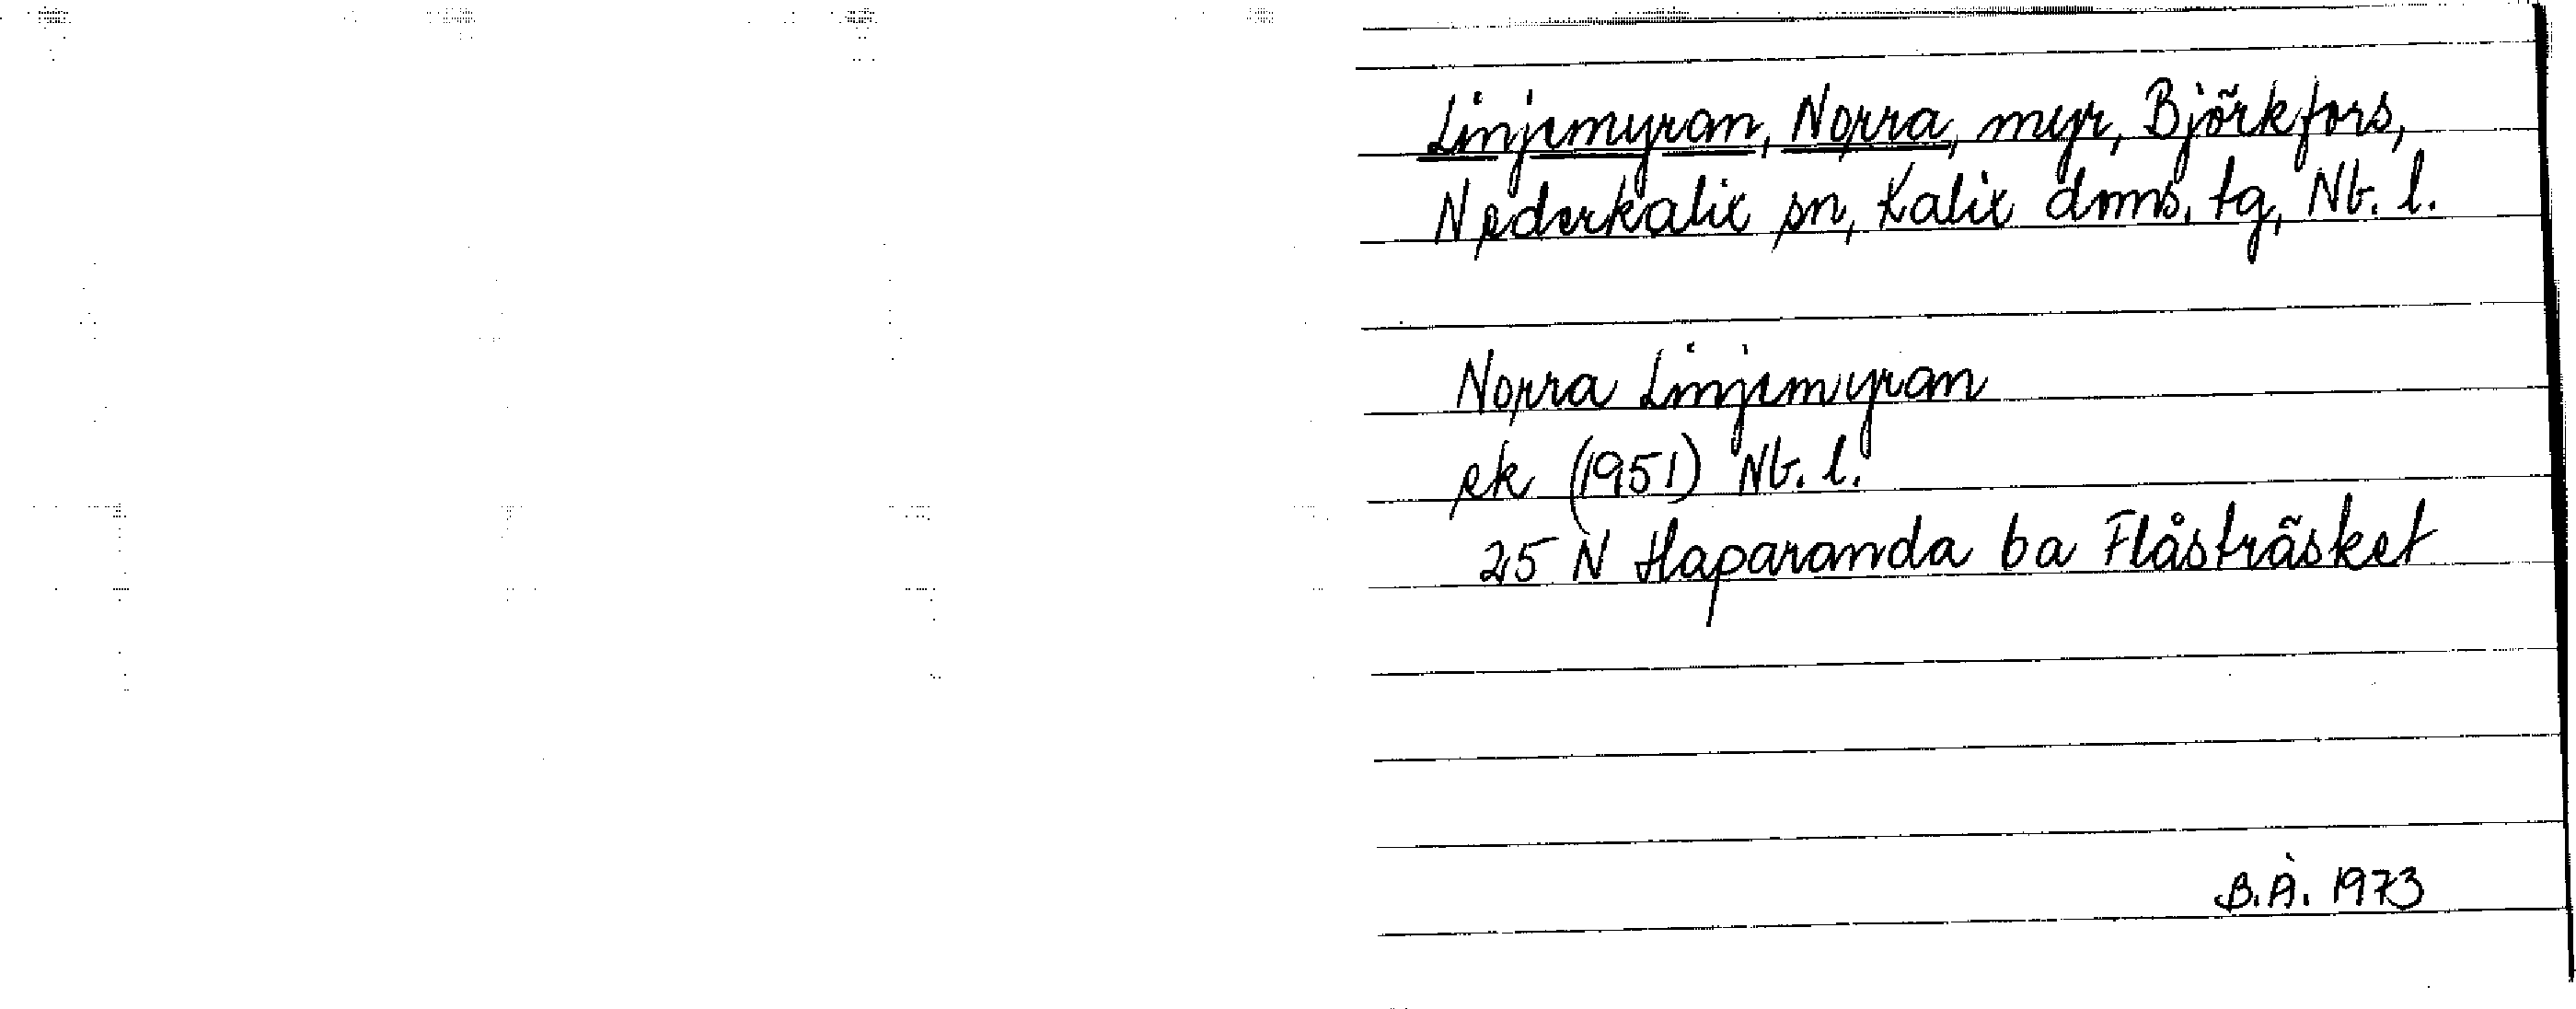 Linjemyran, Norra, myr, Björkfors,
Nederkalix sn, Kalix doms. tg, Nb. l.
Norra Linjemyran
ek (1951) Nb. l.
25 N Haparanda ba Flåsträsket
B.Å. 1973